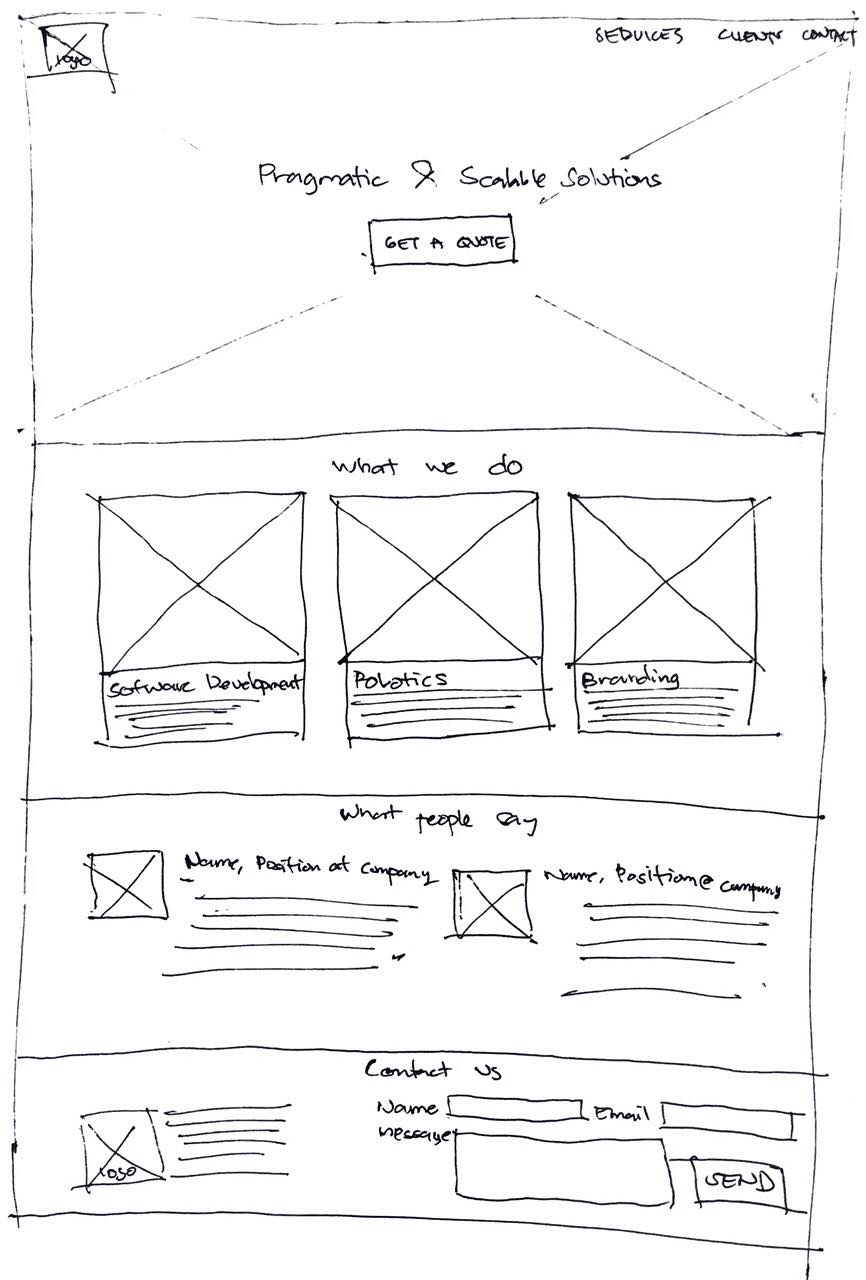 logo
SERVICES CLIENTS CONTACT
Pragmatic & Scalable Solutions
GET A QUOTE
What we do
Software Development
Robotics
Branding
What people say
Name, Position at Company
Name, Position @ company
Contact us
logo
Name
Email
Message
SEND